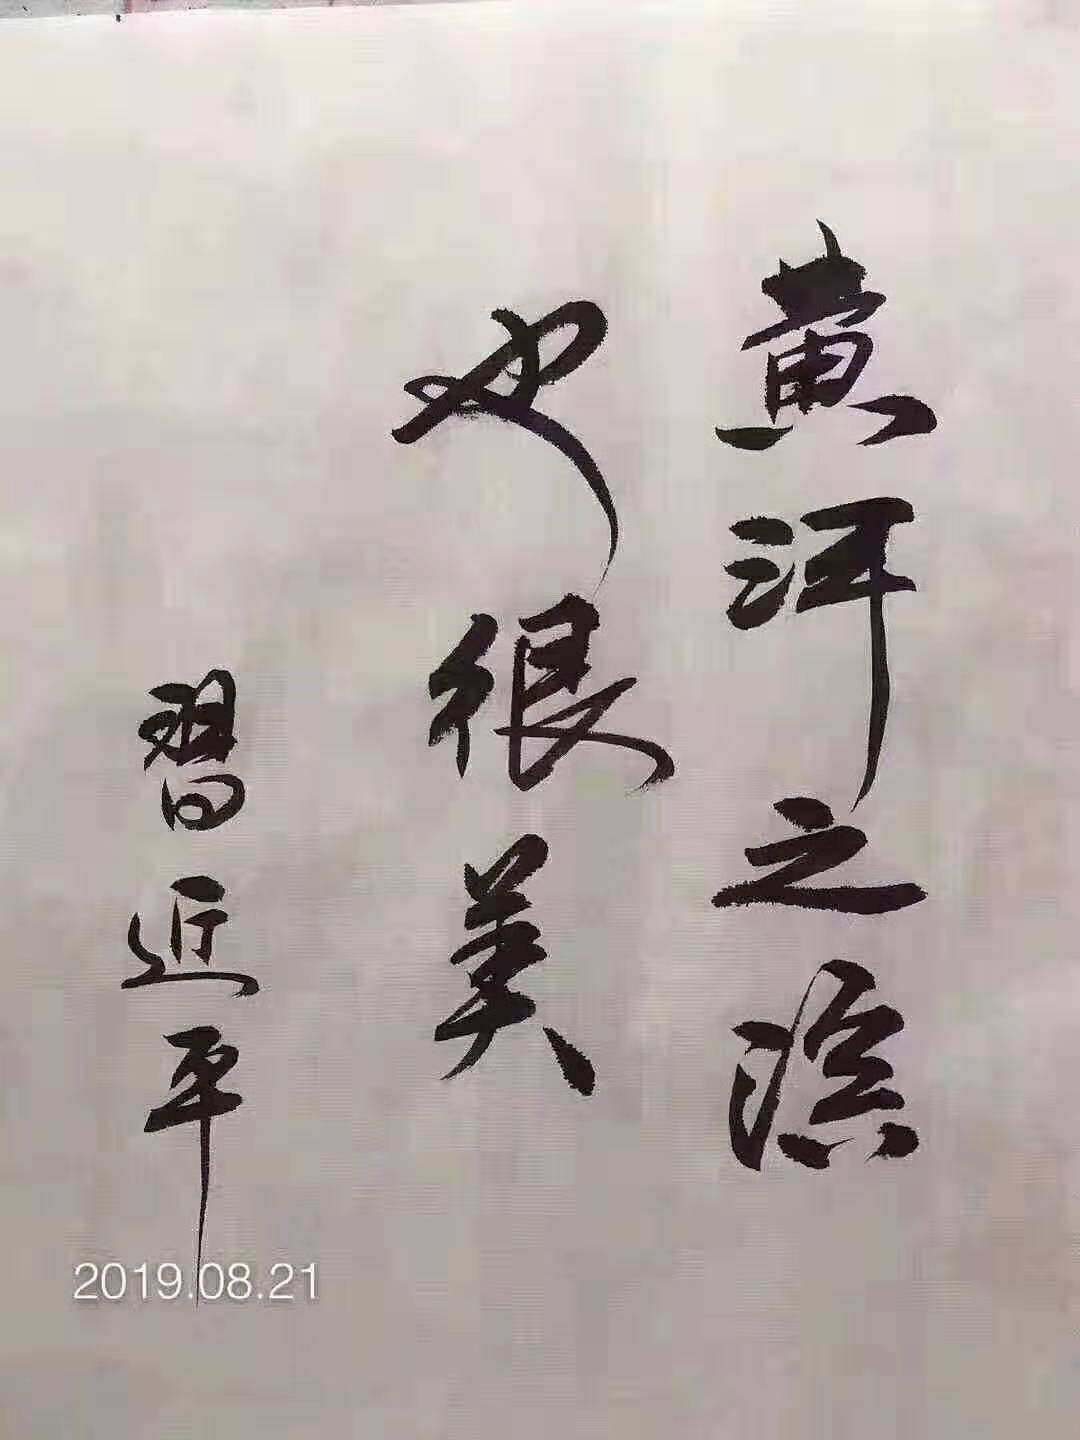 黄河之滨
也很美
習近平
2019.08.21